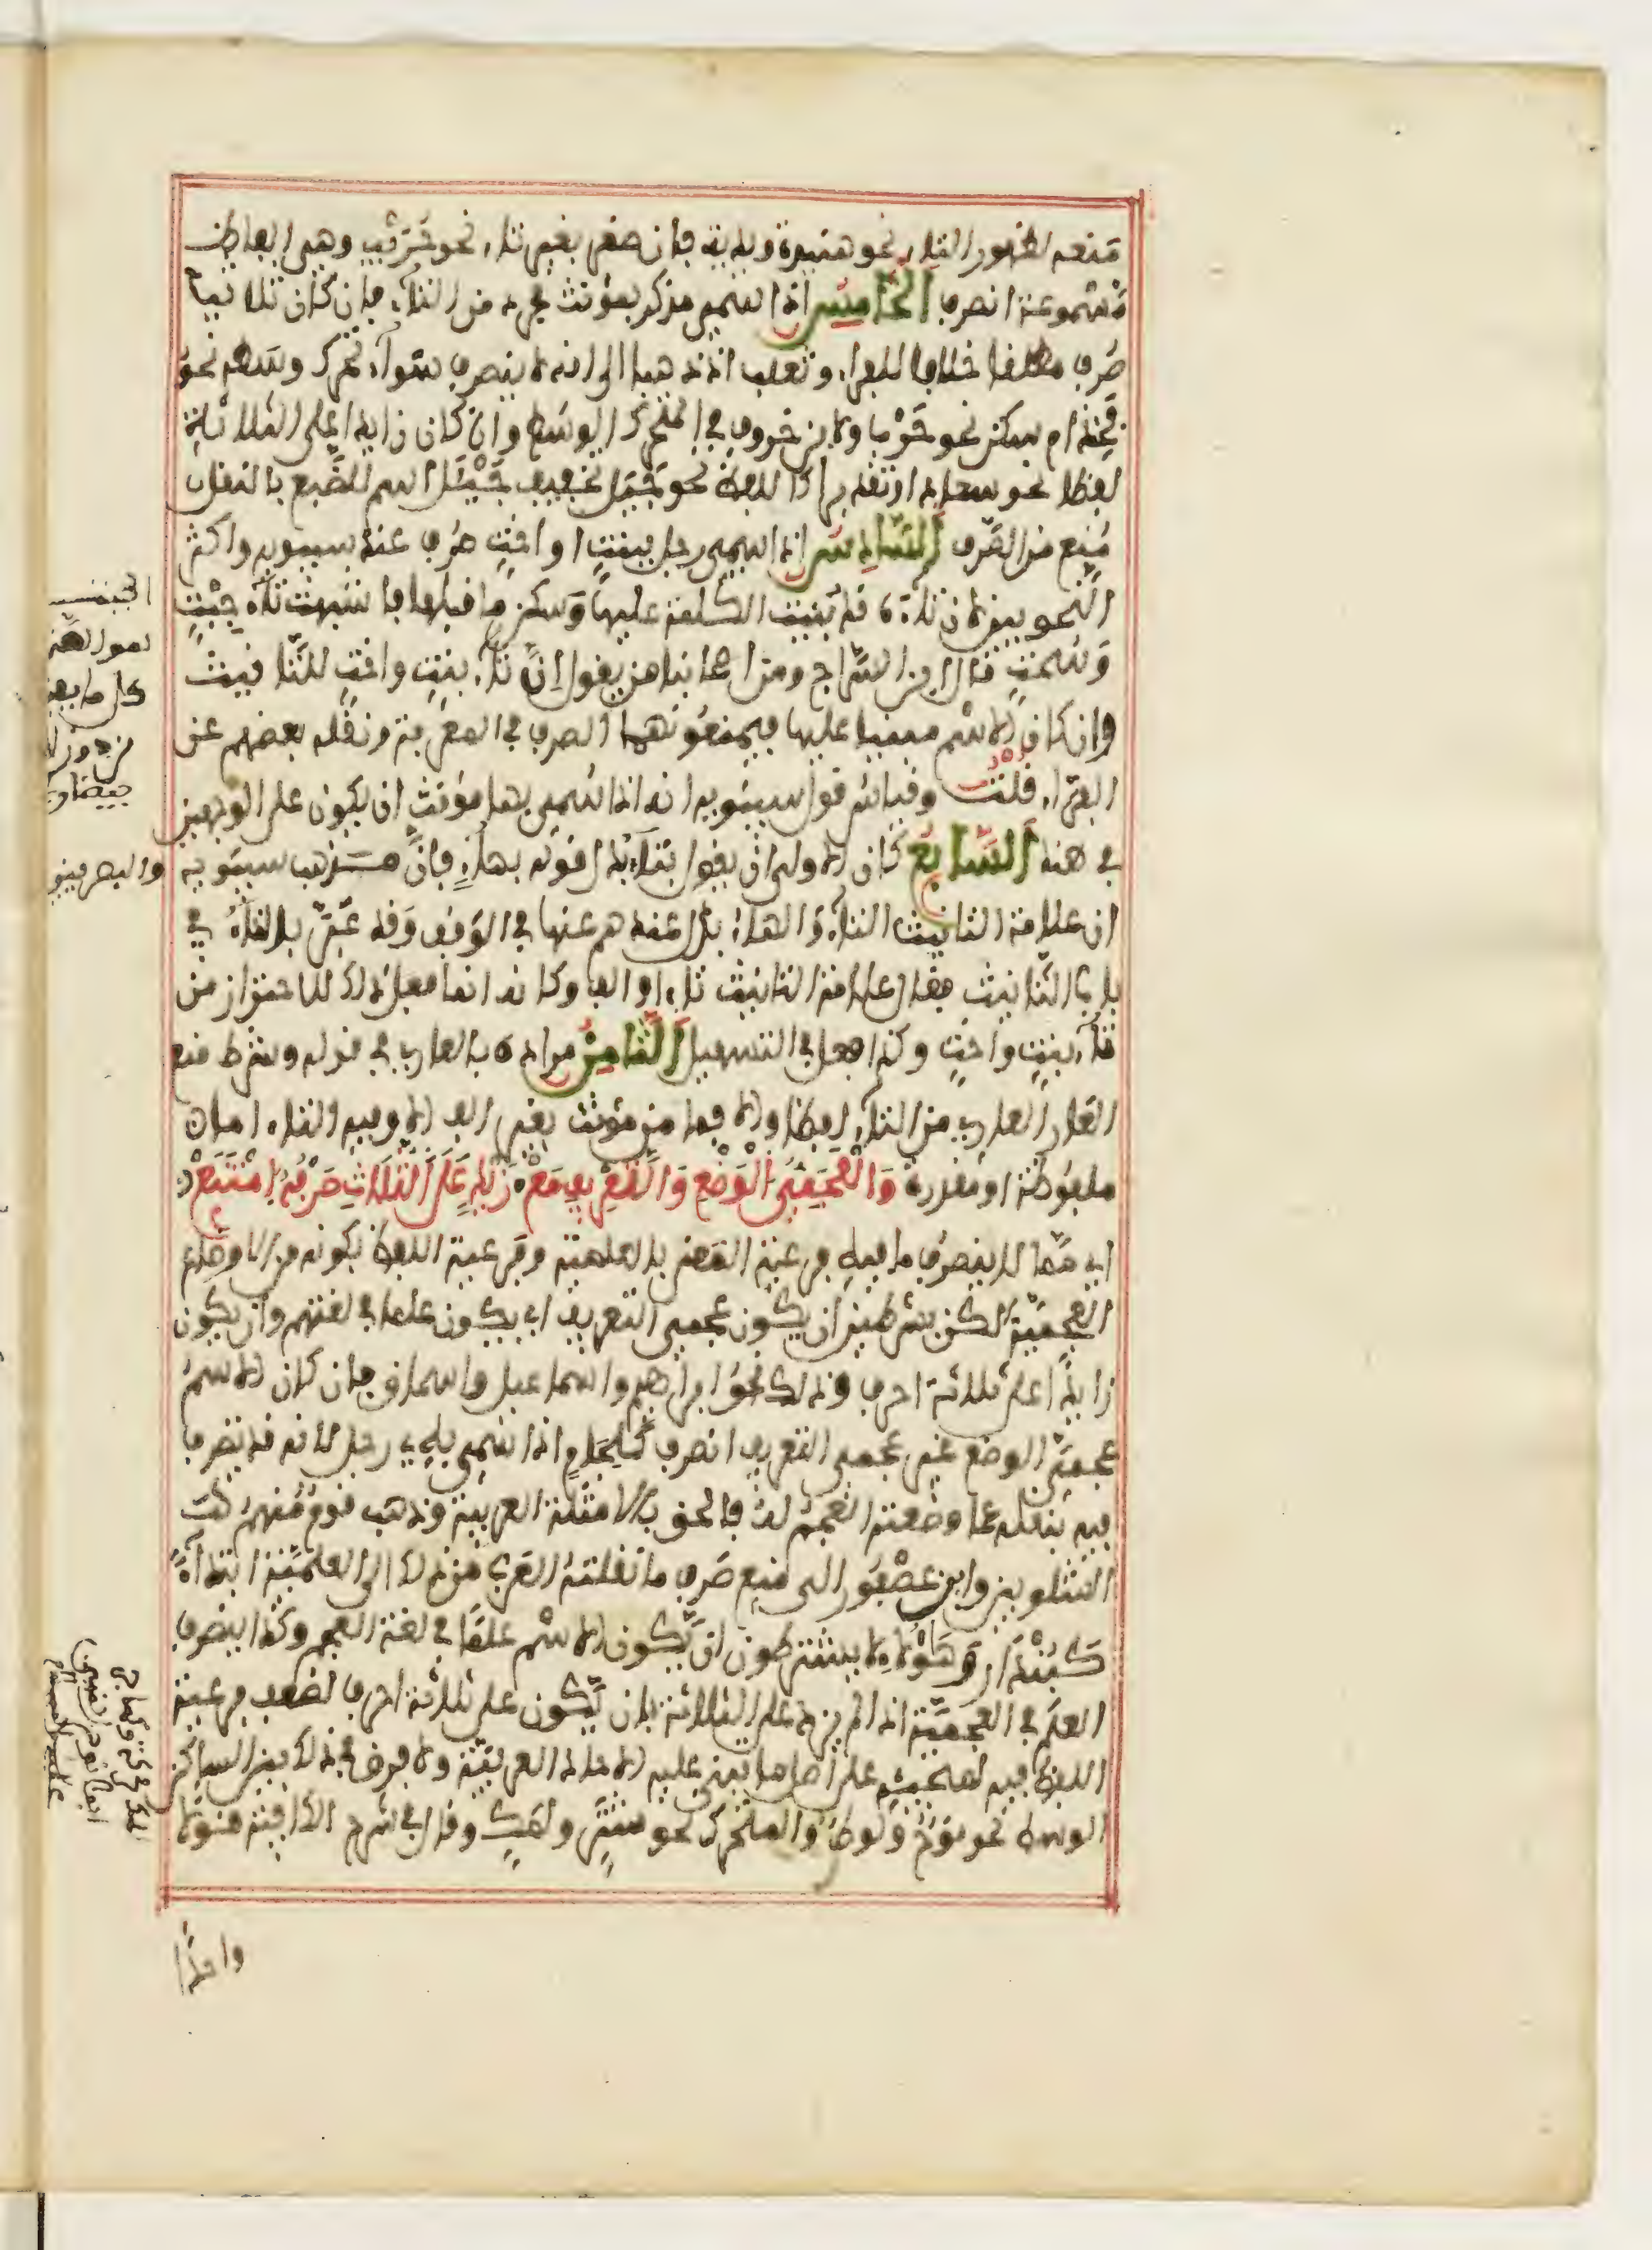 منعه لظهور التاء نحو هنيدة ويدية فإن صغر بغير تاء نحو حريب وهي ألفاظ
مسموعة انصرف الخامس إذا سمي مذكر بمؤنث مجرد من التاء فإن كان ثلاثيا
صرف مطلقا خلافا للفراء وثعلب إذ ذهبا إلى أنه لا ينصرف سواء تحرك وسطه نحو
فخذ أم سكن نحو حرب ولابن خروف في المتحرك الوسط وإن كان زائدا على الثلاثة
لفظا نحو سعاد أو تقديرا كاللفظ نحو جيل تخفيف جيئل اسم للضبع بالنقل
منع من الصرف السادس إذا سمي رجل ببنت أو أخت صرف عند سيبويه وأكثر
النحويين لأن تاءه قد بنيت الكلمة عليها وسكن ما قبلها فأشبهت تاء جبت
وسحت قال ابن السراج ومن أصحابنا من يقول إن تاء بنت وأخت للتأنيث
وإن كان الاسم مبنيا عليها فيمنعونهما الصرف في المعرفة ونقله بعضهم عن
الفراء قلت وقياس قول سيبويه أنه إذا سمي بهما مؤنث أن يكون على الوجهين
في هند السابع كان الأولى أن يقول بتاء بدل قوله بهاء فإن مذهب سيبويه والبصريين
أن علامة التأنيث التاء والهاء بدل عندهم عنها في الوقف وقد عبر بالتاء في
باب التأنيث فقال علامة التأنيث تاء أو ألف وكأنه إنما فعل ذلك للاحتراز من
تاء بنت وأخت وكذا فعل في التسهيل الثامن مراده بالعار في قوله وشرط منع
العار العاري من التاء لفظا وإلا فما من مؤنث بغير ألف إلا وفيه التاء إما
ملفوظة أو مقدرة وَالْعَجَمِيُّ الْوَضْعِ وَالتَّعْرِيفِ مَعْ زَيْدٍ عَلَى الثَّلَاثِ صَرْفُهُ امْتَنَعْ
أي مما لا ينصرف ما فيه فرعية المعنى بالعلمية وفرعية اللفظ بكونه من الأوضاع
العجمية لكن بشرطين أن يكون عجمي التعريف أي يكون علما في لغتهم وأن يكون
زائدا على ثلاثة أحرف وذلك نحو إبراهيم وإسماعيل وإسحاق فإن كان الاسم
عجمي الوضع غير عجمي التعريف انصرف كلجام إذا سمي به رجل لأنه قد تصرف
فيه بنقله عما وضعته العجم له فألحق بالأمثلة العربية وذهب قوم منهم
الشلوبين وابن عصفور إلى منع صرف ما نقلته العرب من ذلك إلى العلمية ابتداء
كبندار وهؤلاء لا يشترطون أن يكون الاسم علما في لغة العجم وكذا ينصرف
العلم في العجمية إذا لم يزد على الثلاثة بأن يكون على ثلاثة أحرف لضعف فرعية
اللفظ فيه لمجيئه على أصل ما تبنى عليه الآحاد العربية ولا فرق في ذلك بين الساكن
الوسط نحو نوح ولوط والمتحرك نحو شتر ولمك وقال في شرح الكافية قولا
واحدا